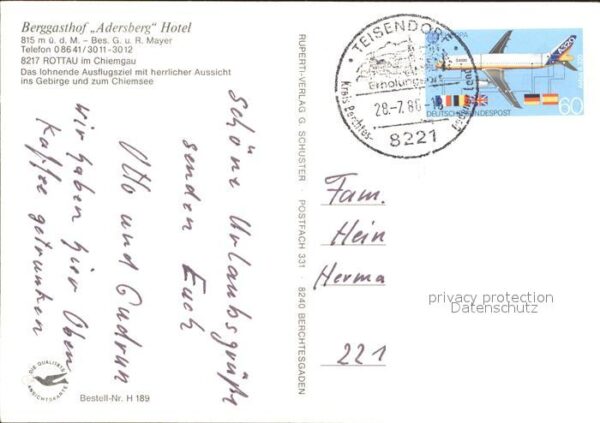 Berggasthof „Adersberg“ Hotel
815 m ü. d. M. – Bes. G. u. R. Mayer
Telefon 08641/3011-3012
8217 ROTTAU im Chiemgau
Das lohnende Ausflugsziel mit herrlicher Aussicht
ins Gebirge und zum Chiemsee
Schöne Urlaubsgrüße
senden Euch
Otto und Gudrun
wir haben hier Oben
Kaffee getrunken
DIE QUALITÄTS
ANSICHTSKARTE
Bestell-Nr. H 189
RUPERTI-VERLAG G. SCHUSTER · POSTFACH 331 · 8240 BERCHTESGADEN
TEISENDORF
Erholungsort
Kreis Berchtes-
gadener Land
8221
EUROPA
DEUTSCHE BUNDESPOST
60
Fam.
Hein
Herma
221
privacy protection
Datenschutz